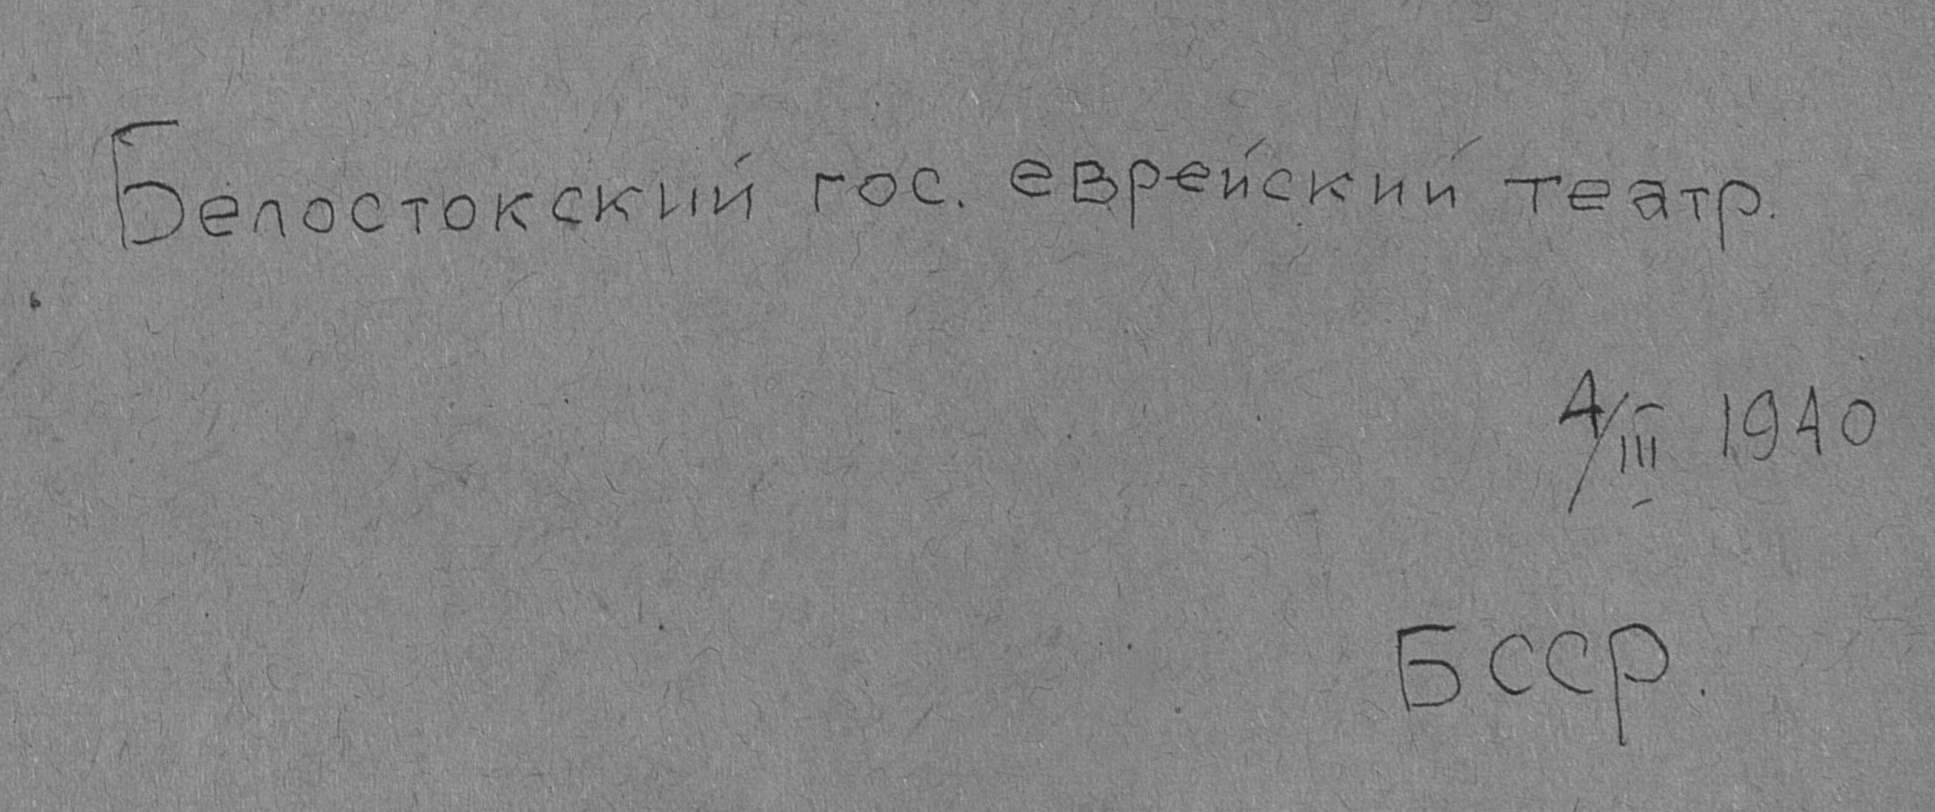 Белостокский гос. еврейский театр.
4/III 1940
БССР.